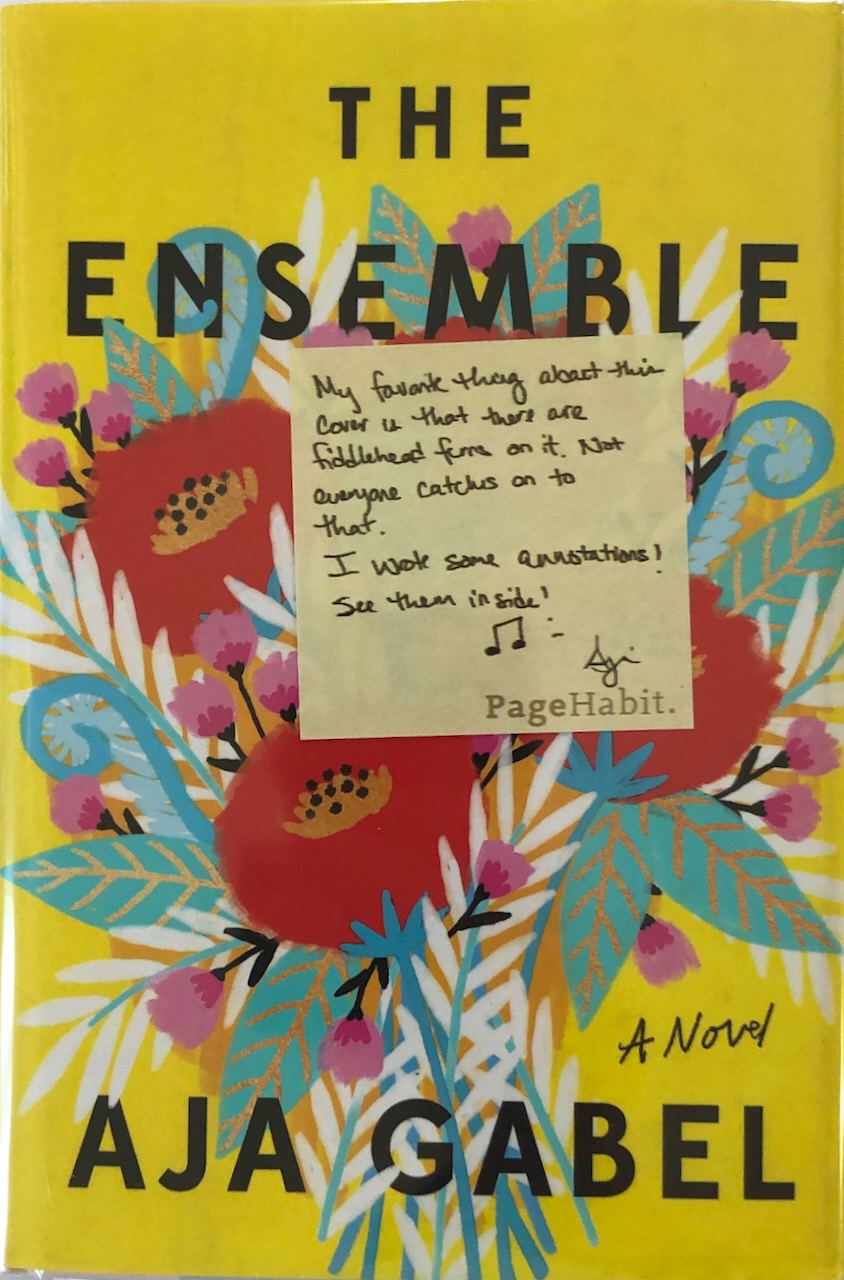 THE
ENSEMBLE
My favorite thing about this
cover is that there are
fiddlehead ferns on it. Not
everyone catches on to
that.
I wrote some annotations!
See them inside!
Aja
PageHabit.
A Novel
AJA GABEL